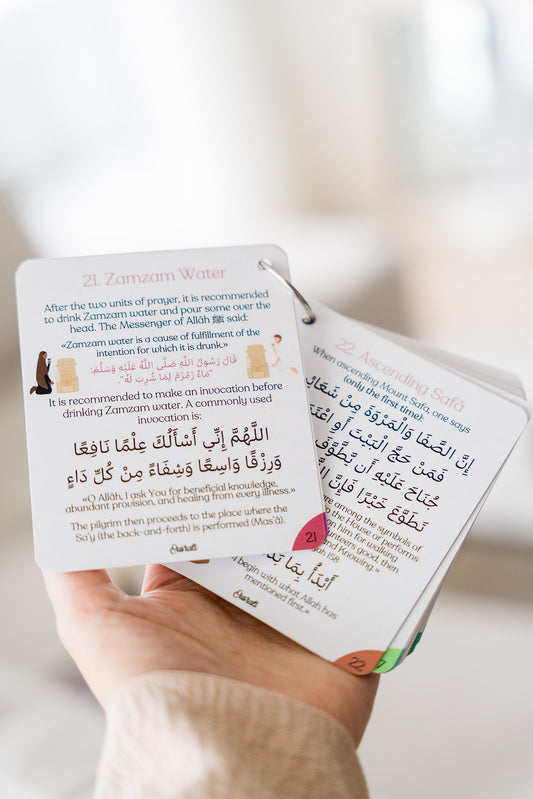 21. Zamzam Water
After the two units of prayer, it is recommended
to drink Zamzam water and pour some over the
head. The Messenger of Allāh ﷺ said:
«Zamzam water is a cause of fulfillment of the
intention for which it is drunk.»
قَالَ رَسُولُ اللَّهِ صَلَّى اللَّهُ عَلَيْهِ وَسَلَّمَ:
"مَاءُ زَمْزَمَ لِمَا شُرِبَ لَهُ".
It is recommended to make an invocation before
drinking Zamzam water. A commonly used
invocation is:
اللَّهُمَّ إِنِّي أَسْأَلُكَ عِلْمًا نَافِعًا
وَرِزْقًا وَاسِعًا وَشِفَاءً مِنْ كُلِّ دَاءٍ
«O Allāh, I ask You for beneficial knowledge,
abundant provision, and healing from every illness.»
The pilgrim then proceeds to the place where the
Sa'y (the back-and-forth) is performed (Mas'ā).
21
22. Ascending Safā
When ascending Mount Safa, one says
(only the first time):
إِنَّ الصَّفَا وَالْمَرْوَةَ مِنْ شَعَائِ
فَمَنْ حَجَّ الْبَيْتَ أَوِ اعْتَمَ
جُنَاحَ عَلَيْهِ أَن يَطَّوَّفَ
تَطَوَّعَ خَيْرًا فَإِنَّ ال
are among the symbols of
the House or performs
on him for walking
unteers good, then
and Knowing.»
ah 158
أَبْدَأُ بِمَا بَدَ
begin with what Allah has
mentioned first.»
22